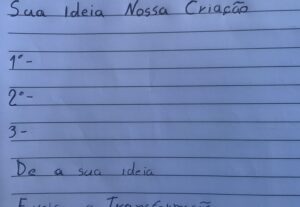 Sua Ideia Nossa Criação
1º-
2º-
3-
De a sua ideia